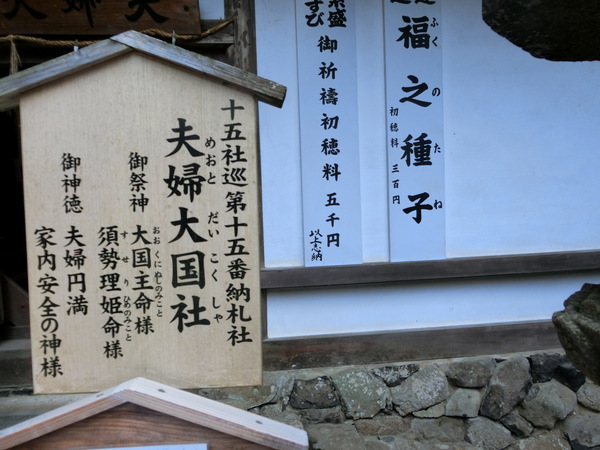 十五社巡第十五番納札社
夫婦大国社
めおとだいこくしゃ
御祭神 大国主命様
おおくにぬしのみこと
須勢理姫命様
すせりひめのみこと
御神徳 夫婦円満
家内安全の神様
福之種子
ふくのたね
初穂料 三百円
御祈祷初穂料 五千円
以上志納